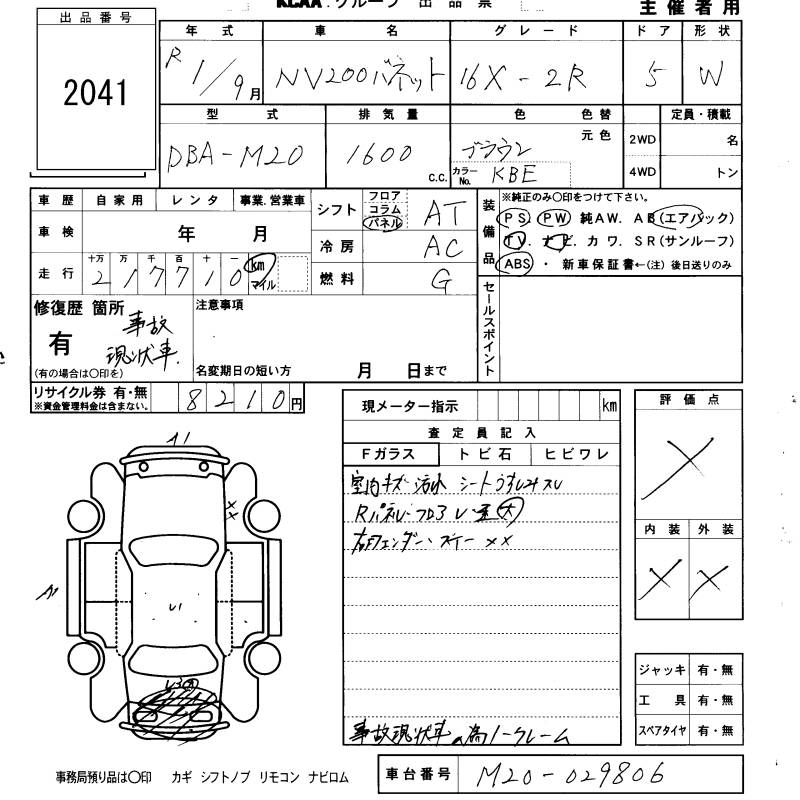 KCAA グループ 出品票
主催者用
出品番号
2041
年式 車名 グレード ドア 形状
R 1/9月 NV200バネット 16X-2R 5 W
型式 排気量 色 色替 定員・積載
DBA-M20 1600 c.c. ブラウン 元色 2WD 名
カラーNo. KBE 4WD トン
車歴 自家用 レンタ 事業.営業車
車検 年 月
走行 十万 万 千 百 十 一
217710 km マイル
シフト フロア コラム パネル AT
冷房 AC
燃料 G
装備品
※純正のみ○印をつけて下さい。
PS. PW 純AW. AB(エアバック)
TV. ナビ. カワ. SR(サンルーフ)
ABS ・ 新車保証書←(注)後日送りのみ
修復歴 箇所
有 事故現状車
(有の場合は○印を)
注意事項
名変期日の短い方 月 日まで
セールスポイント
リサイクル券 有・無 8210円
※資金管理料金は含まない。
現メーター指示 km
査定員記入
Fガラス トビ石 ヒビワレ
室内キズ・汚れ シート
Rパネル・フロア
右Fフェンダー
事故現状車の為ノークレーム
評価点
内装 外装
A1
A1
U1
ジャッキ 有・無
工具 有・無
スペアタイヤ 有・無
事務局預り品は○印 カギ シフトノブ リモコン ナビロム
車台番号 M20-029806